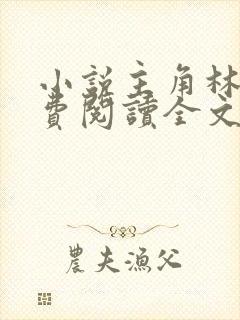 小説主角林
費閱讀全文
農夫漁父